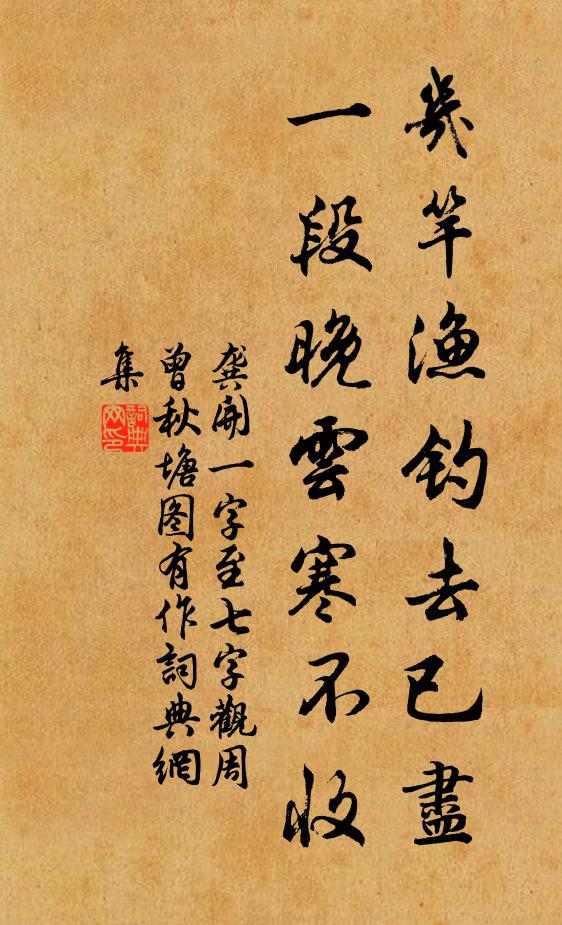 幾竿漁釣去已盡
一段晚雲寒不收
龚開一字至七字觀周
曾秋塘图有作詞典網
集
詞典网印